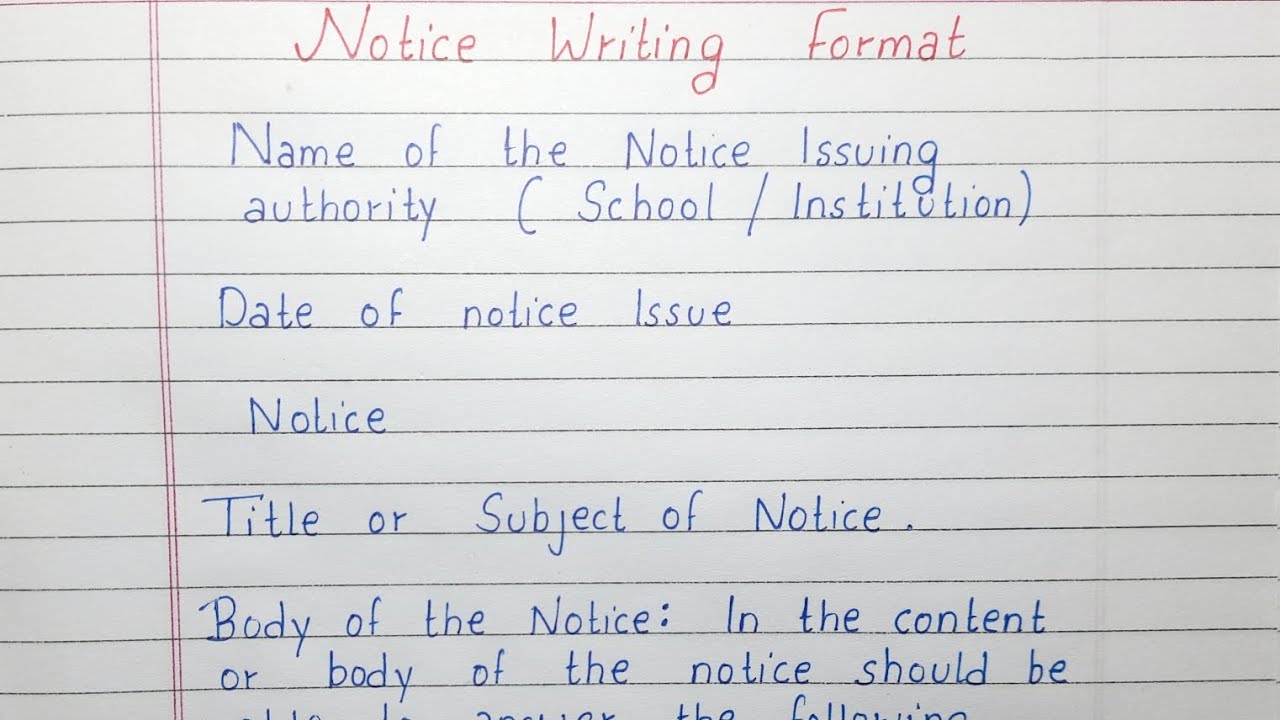 Notice Writing format
Name of the Notice Issuing
authority ( School / Institution)
Date of notice Issue
Notice
Title or Subject of Notice.
Body of the Notice: In the content
or body of the notice should be
able to answer the following